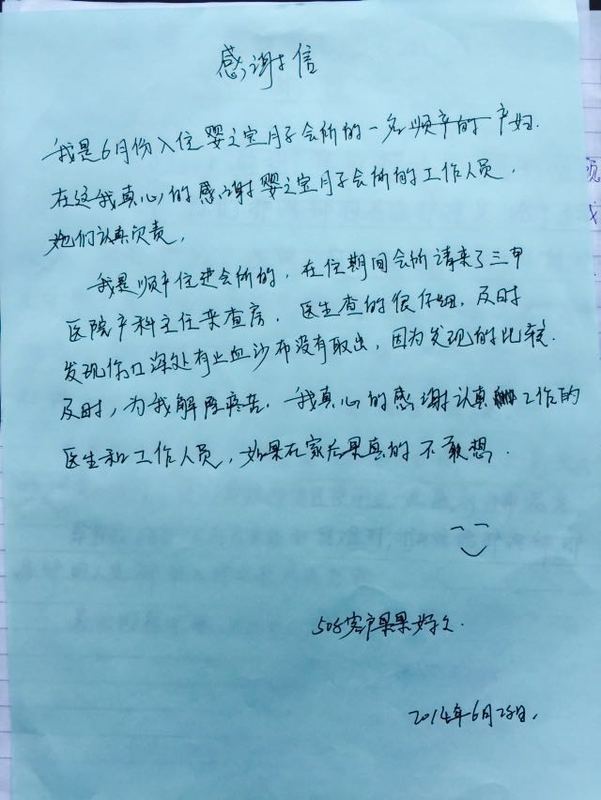 感谢信
我是6月份入住婴之宝月子会所的一名顺产的产妇.
在这我真心的感谢婴之宝月子会所的工作人员.
她们认真负责,
我是顺产住进会所的,在住期间会所请来了三甲
医院产科主任来查房,医生查的很仔细,及时
发现伤口深处有止血沙布没有取出,因为发现的比较
及时,为我解除疼苦.我真心的感谢认真工作的
医生和工作人员,如果在家后果真的不敢想.
客户果果妈妈.
2014年6月28日.